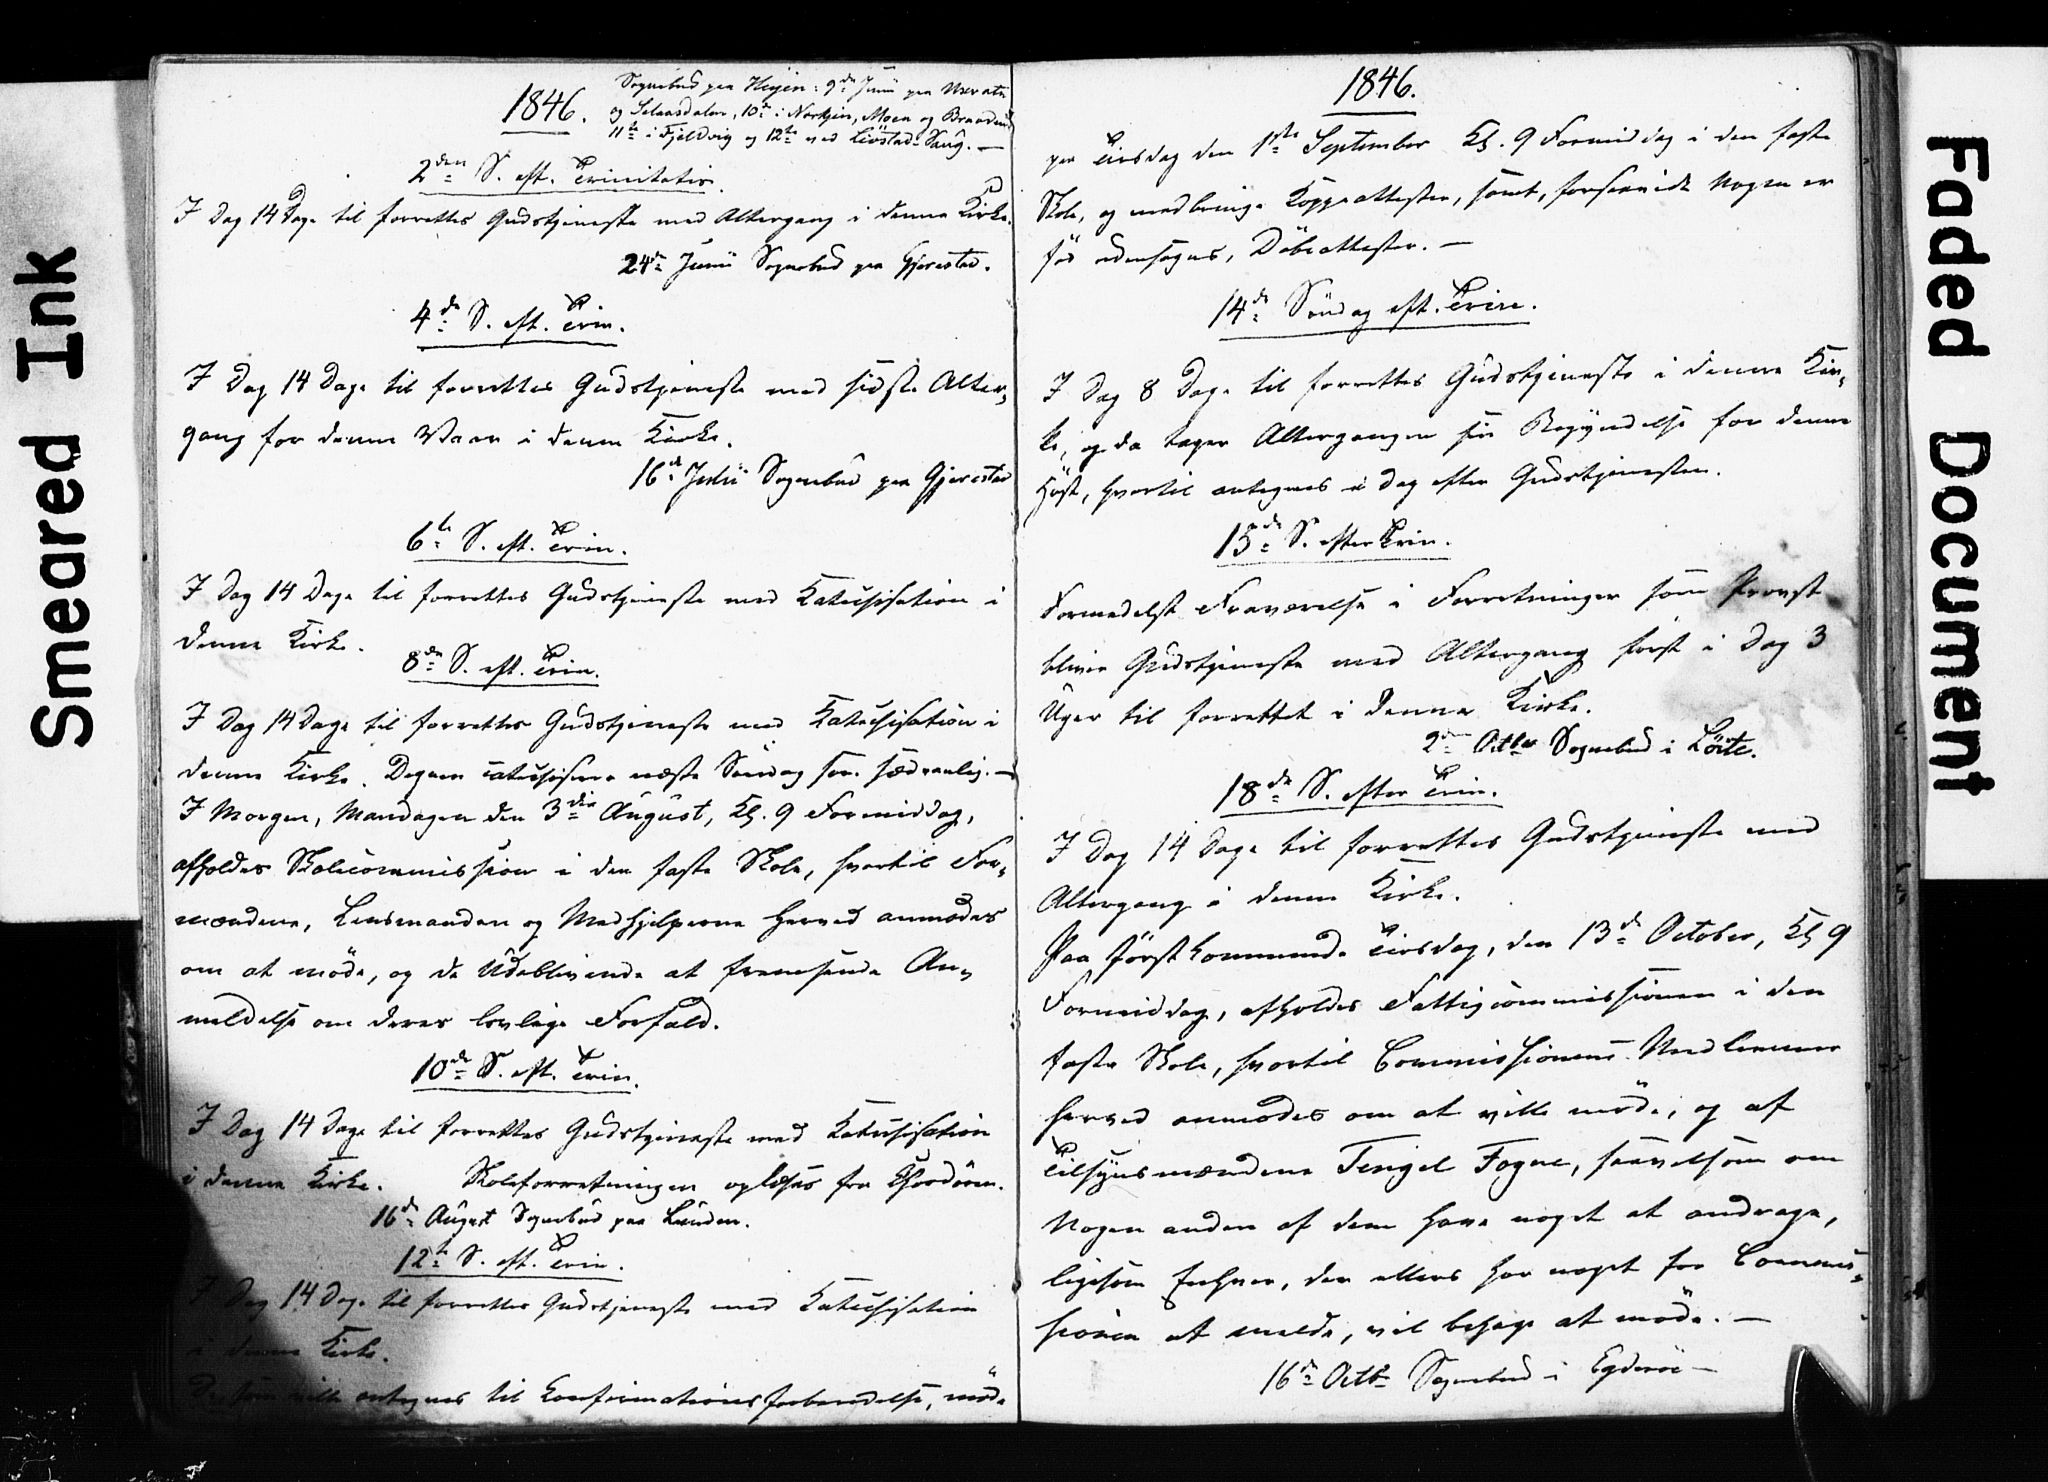 Smeared Ink
1846.
Sognebud paa Heyen: 9de Junii paa
og Selaasdalen, 10de i Norkjen, Moen og Braadland
11te i Fjeldvig og 12te ved Livstad-Saug. —
2den S. eft. Trinitatis.
I Dag 14 Dage til forrettes Gudstjeneste med Altergang i denne Kirke.
24de Junii Sognebud paa Gjerestad.
4de S. eft. Trin.
I Dag 14 Dage til forrettes Gudstjeneste med sidste Alter-
gang for denne Vaar i denne Kirke.
16de Julii Sognebud paa Gjerestad
6te S. eft. Trin.
I Dag 14 Dage til forrettes Gudstjeneste med Katechisation i
denne Kirke.
8de S. eft. Trin.
I Dag 14 Dage til forrettes Gudstjeneste med Katechisation i
denne Kirke. Degnen catechiserer næste Søndag som sædvanlig. —
I Morgen, Mandagen den 3die August, Kl. 9 Formiddag,
afholdes Skolecommission i den faste Skole, hvortil For-
mændene, Lensmanden og Medhjelperne herved anmodes
om at møde, og de Udeblivende at fremsende An-
meldelse om deres lovlige Forfald.
10de S. eft. Trin.
I Dag 14 Dage til forrettes Gudstjeneste med Katechisation
i denne Kirke. Skoleforretningen oplæses fra Chordören.
16de August Sognebud paa Lunden.
12te S. eft. Trin.
I Dag 14 Dage til forrettes Gudstjeneste med Katechisation
i denne Kirke.
De som ville antegnes til Confirmationsforberedelse, møde
1846.
paa Tirsdag den 1ste September Kl. 9 Formiddag i den faste
Skole, og medbringe Koppeattester, samt, forsaavidt Nogen er
fød udensogns, Döbeattester. —
14de Söndag eft. Trin.
I Dag 8 Dage til forrettes Gudstjeneste i denne Kir-
ke, og da tager Altergangen sin Begyndelse for denne
Höst, hvortil antegnes i Dag efter Gudstjenesten.
15de S. efter Trin.
Formedelst Fraværelse i Forretninger som Provst
bliver Gudstjeneste med Altergang först i Dag 3
Uger til forrettet i denne Kirke.
2den Octbr Sognebud i Löite.
18de S. efter Trin.
I Dag 14 Dage til forrettes Gudstjeneste med
Altergang i denne Kirke.
Paa förstkommende Tirsdag, den 13de October, Kl 9
Formiddag, afholdes Fattigcommissionen i den
faste Skole, hvortil Commissionens Medlemmer
herved anmodes om at ville møde, og af
Tilsynsmændene Tengel Fogne, saavelsom om
Nogen anden af dem have noget at andrage,
ligesom Enhver, der ellers har noget for Commis-
sionen at melde, vil behage at møde. —
16de Octb Sognebud i Egderöe —
Faded Document